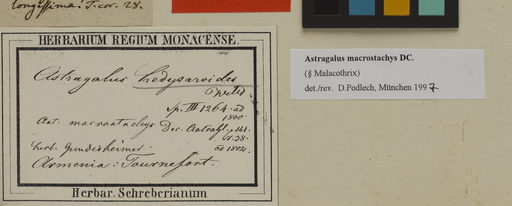 longissima: T. cor. 28.
HERBARIUM REGIUM MONACENSE.
Astragalus hedysaroides
sp. III 1264. ad
1800
Astr. macrostachys Dec. Astragal. p. 141.
ao 1802.
herb. Gundesheimer.
Armenia: Tournefort.
Herbar. Schreberianum
Astragalus macrostachys DC.
(§ Malacothrix)
det./rev. D.Podlech, München 1997